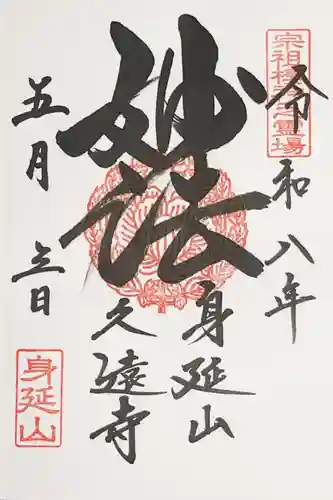 宗祖棲神之霊場
令和八年
妙法
身延山
久遠寺
五月三日
身延山